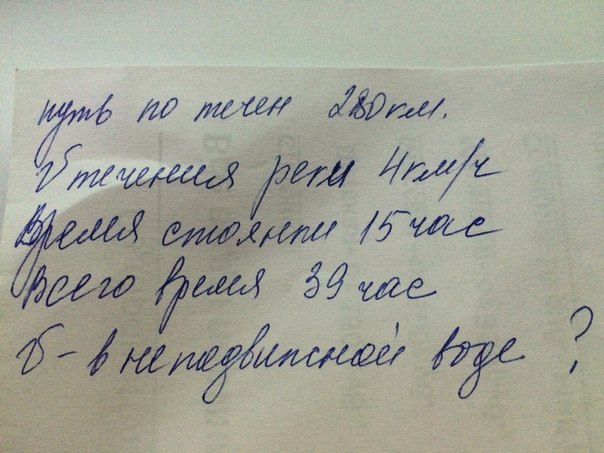 путь по течен 280км.
V течения реки 4км/ч
Время стоянки 15час
Всего время 39час
V - в неподвижной воде ?